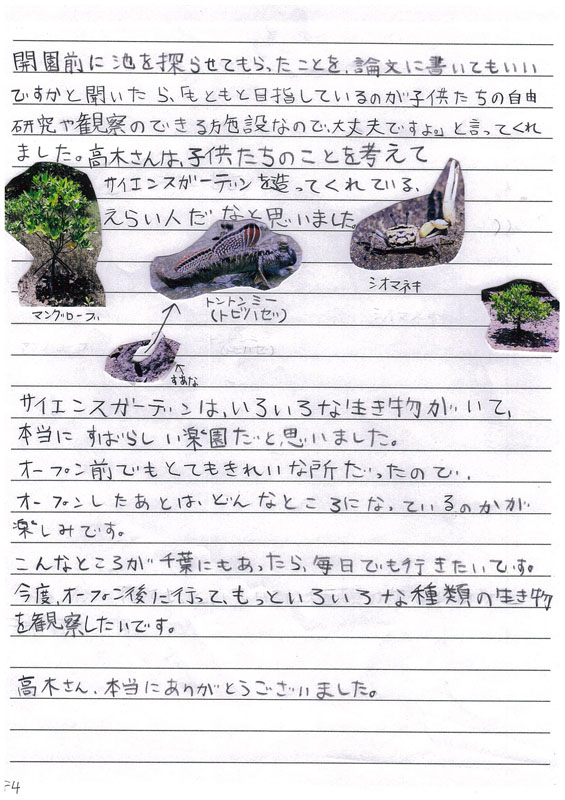 開園前に池を探らせてもらったことを、論文に書いてもいい
ですかと聞いたら、「もともと目指しているのが子供たちの自由
研究や観察のできる施設なので、大丈夫ですよ。」と言ってくれ
ました。高木さんは、子供たちのことを考えて
サイエンスガーディンを造ってくれている、
えらい人だなと思いました。
マングローブ
トントンミー
(トビハゼ)
シオマネキ
すあな
サイエンスガーディンは、いろいろな生き物がいて、
本当にすばらしい楽園だと思いました。
オープン前でもとてもきれいな所だったので、
オープンしたあとは、どんなところになっているのかが
楽しみです。
こんなところが千葉にもあったら、毎日でも行きたいです。
今度、オープン後に行って、もっといろいろな種類の生き物
を観察したいです。
高木さん、本当にありがとうございました。